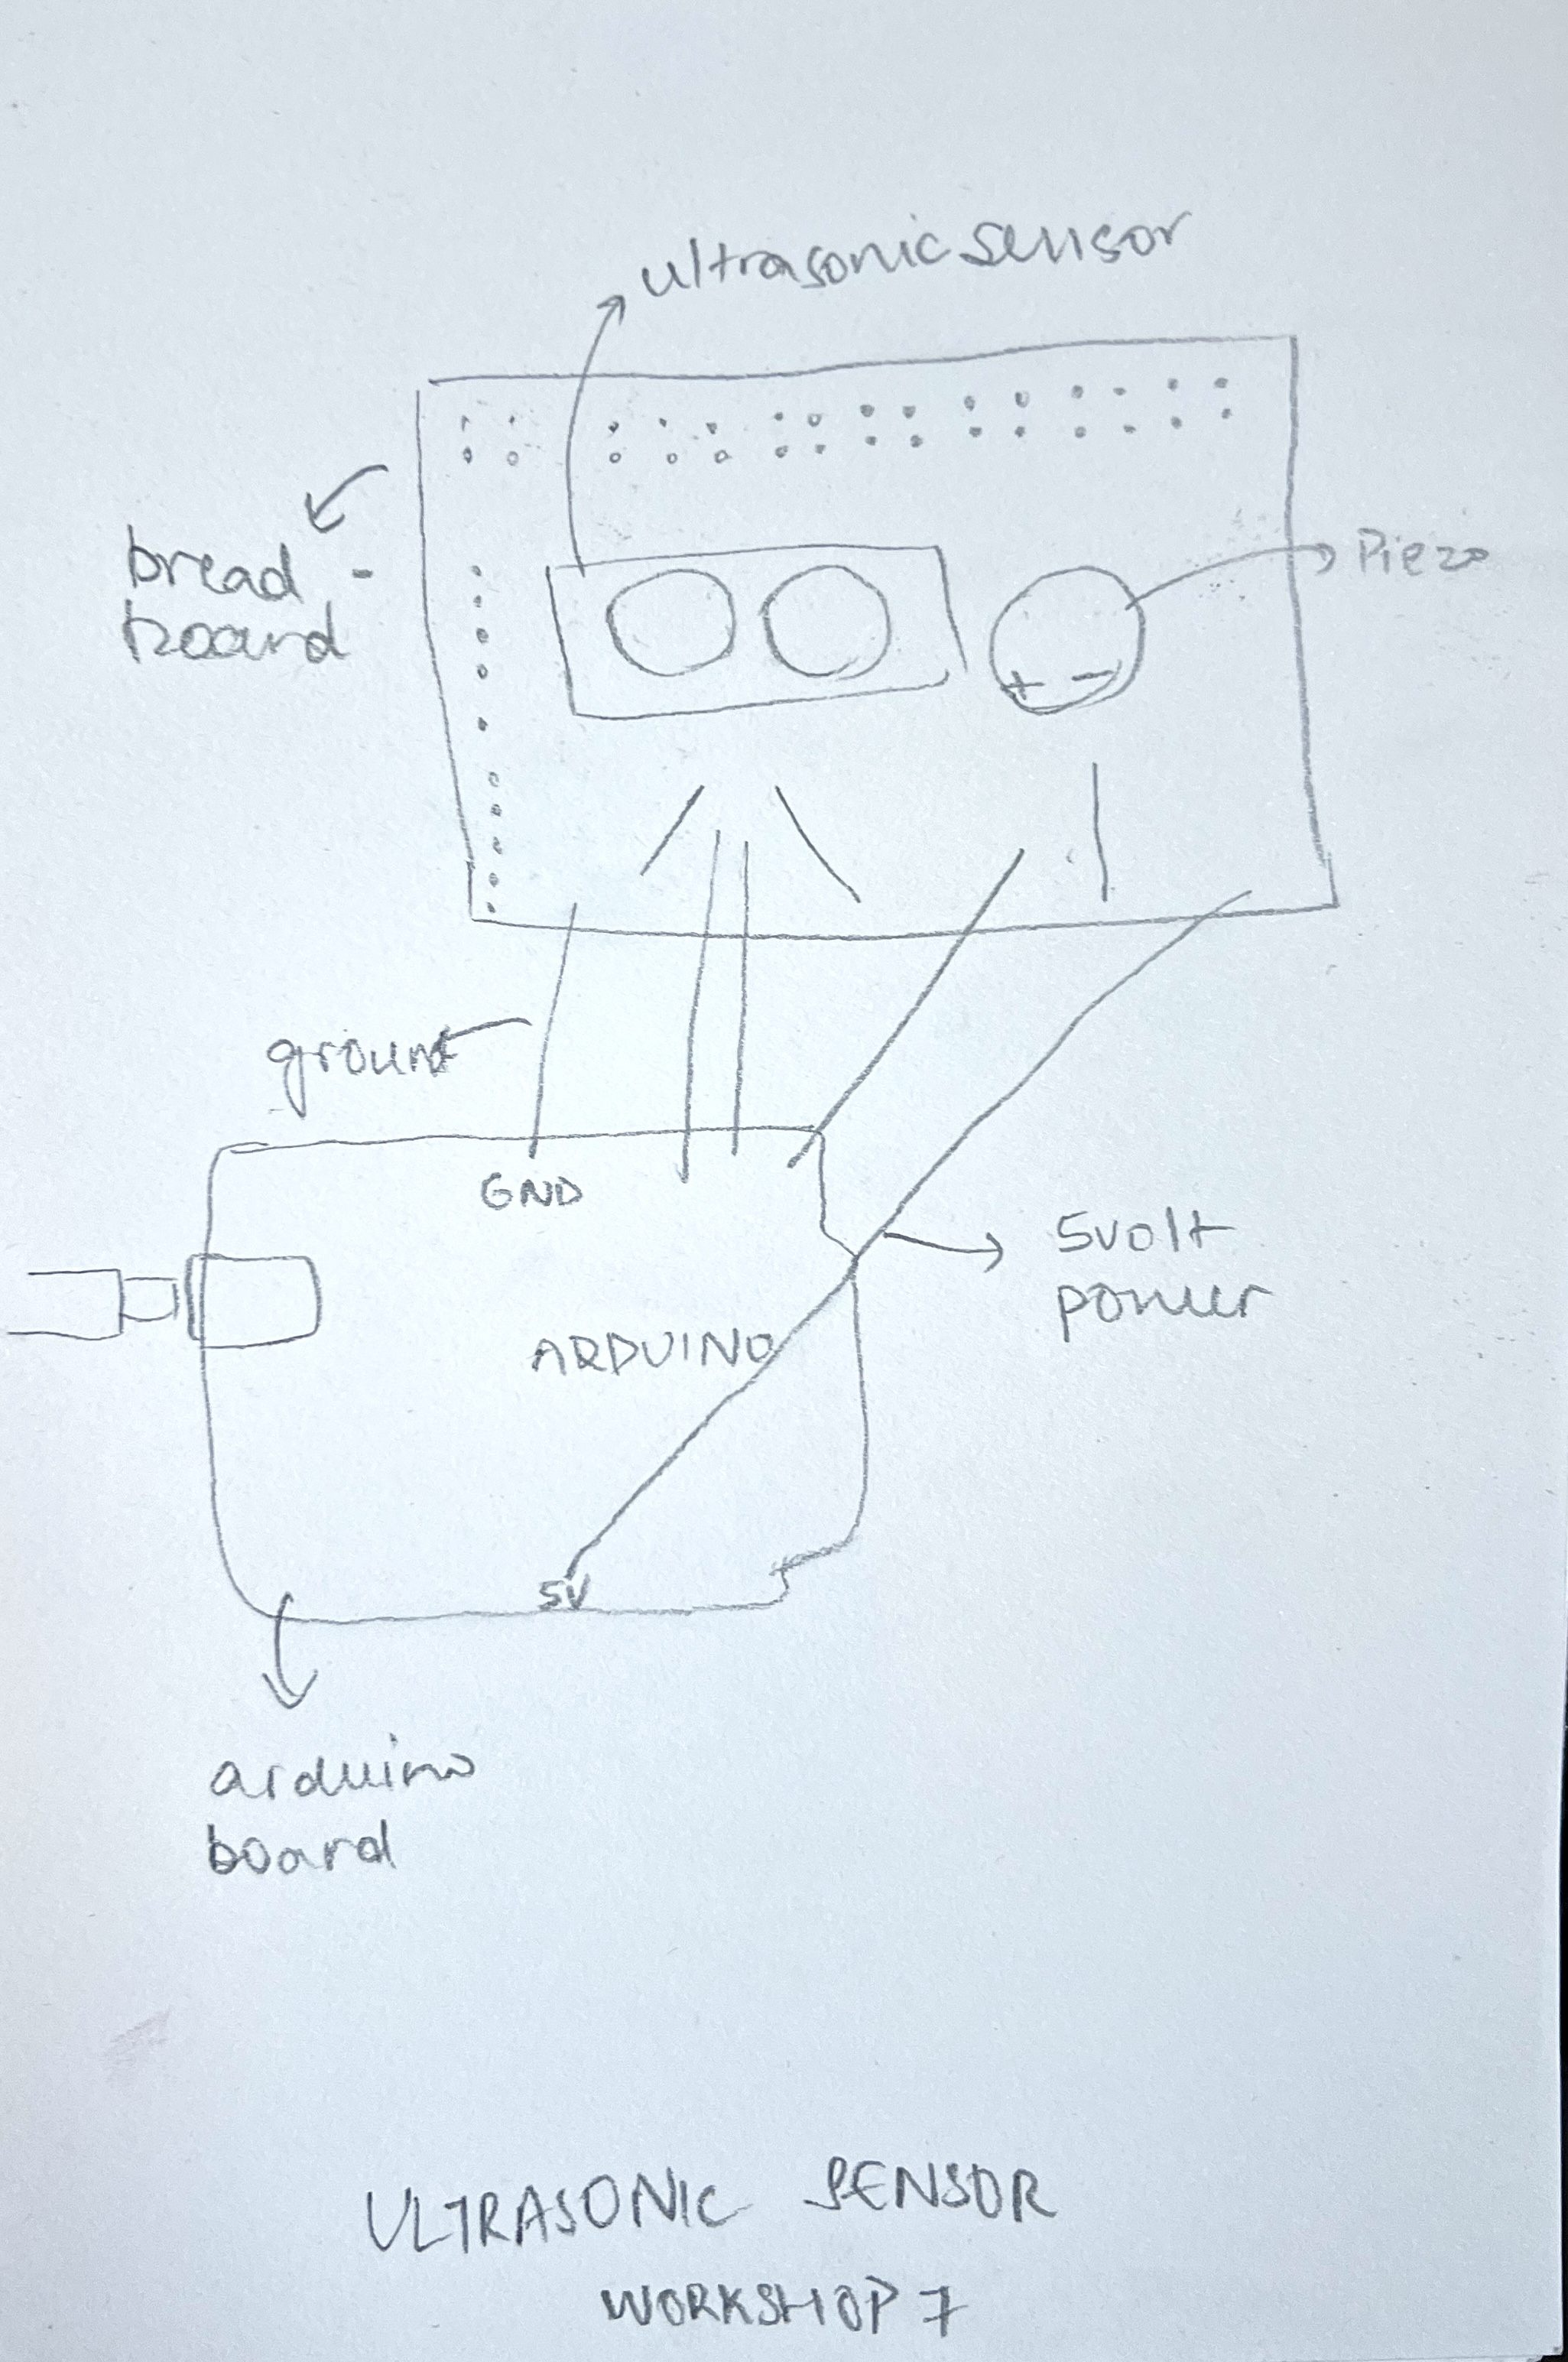 ultrasonic sensor
bread -
board
Piezo
+ -
ground
GND
5volt
power
ARDUINO
5V
arduino
board
ULTRASONIC SENSOR
WORKSHOP 7